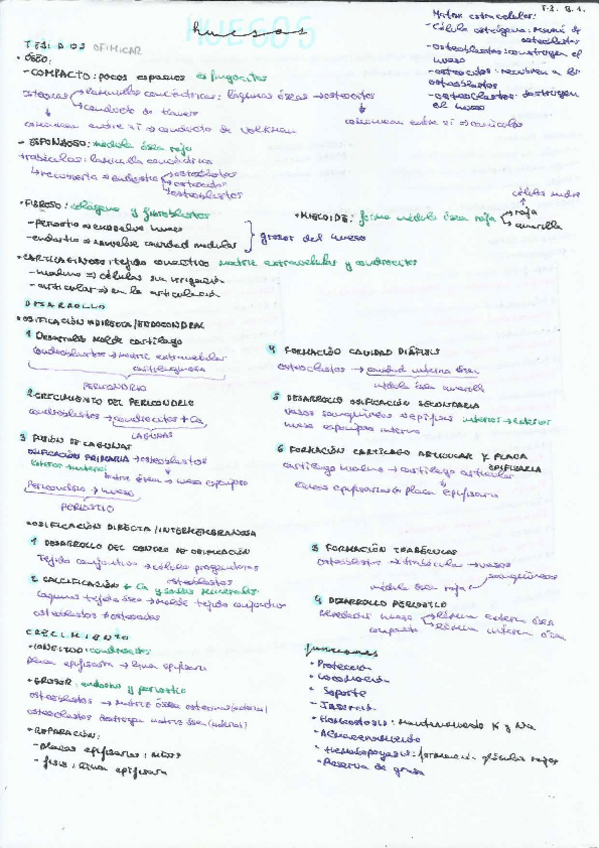 huesos
T.2. B.1.
Matriz extracelular:
- Célula osteógena:
- osteoblastos: construyen el
hueso
- osteocitos: recubren a los
osteoblastos
- osteoclastos: destruyen
el hueso
TEJIDOS
• ÓSEO:
- COMPACTO: pocos espacios
laminillas concéntricas: lagunas óseas → osteocitos
conducto de
comunican entre sí → conducto de Volkman
comunican entre sí → canículos
- ESPONJOSO: médula ósea roja
trabéculas: laminilla concéntrica
→ recubierta → endostio
osteoblastos
osteocitos
osteoclastos
• FIBROSO: colágeno y fibroblastos
- periostio → envuelve hueso
- endostio → envuelve cavidad medular
grosor del hueso
• MIELOIDE: forma médula ósea roja
célula madre
roja
amarilla
• CARTILAGINOSO: tejido conectivo matriz extracelular y condrocitos
- hialino → células sin irrigación
- articular → en la articulación
DESARROLLO
• OSIFICACIÓN INDIRECTA/ENDOCONDRAL
1 Desarrollo Molde cartílago
condroblastos → matriz extracelular
cartilaginosa
PERICONDRIO
2 CRECIMIENTO DEL PERICONDRIO
condroblastos → condrocitos + Ca
LAGUNAS
3 FUSIÓN DE LAGUNAS
OSIFICACIÓN PRIMARIA → osteoblastos
matriz ósea → hueso esponjoso
Pericondrio → hueso
PERIOSTIO
4 FORMACIÓN CAVIDAD DIÁFISIS
osteoclastos → cavidad interna ósea
médula ósea amarilla
5 DESARROLLO OSIFICACIÓN SECUNDARIA
vasos sanguíneos → epífisis interior → exterior
hueso esponjoso interno
6 FORMACIÓN CARTÍLAGO ARTICULAR Y PLACA
EPIFISARIA
cartílago hialino → cartílago articular
placa epifisaria
• OSIFICACIÓN DIRECTA/INTERMEMBRANOSA
1 DESARROLLO DEL CENTRO DE OSIFICACIÓN
Tejido conjuntivo → célula progenitoras
osteoblastos
2 CALCIFICACIÓN + Ca y sales minerales
Lagunas tejido óseo → Molde tejido conjuntivo
osteoblastos → osteocitos
3 FORMACIÓN TRABÉCULAS
osteoblastos → trabécula → vasos
sanguíneos
médula ósea roja
4 DESARROLLO PERIOSTIO
Alrededor hueso
compacto
lámina externa ósea
lámina interna ósea
CRECIMIENTO
• LONGITUD: condrocitos
placa epifisaria → línea epifisaria
• GROSOR: endostio y periostio
osteoblastos → matriz ósea externa
osteoclastos destruyen matriz ósea
• REPARACIÓN:
- placas epifisarias: niños
- línea epifisaria
funciones
• Protección
• Locomoción
• Soporte
• Homeostasis: mantenimiento K y Na
• Almacenamiento
• Hematopoyesis: formación glóbulos rojos
• Reserva de grasa